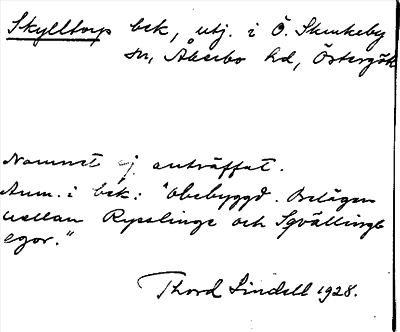 Skylltorp bsk, utj. i Ö. Skrukeby
sn, Åkerbo hd, Östergötl
Namnet ej anträffat.
Anm. i bsk: "Obebyggd. Belägen
mellan Rysslinge och Sqvällinge
egor."
Thord Lindell 1928.